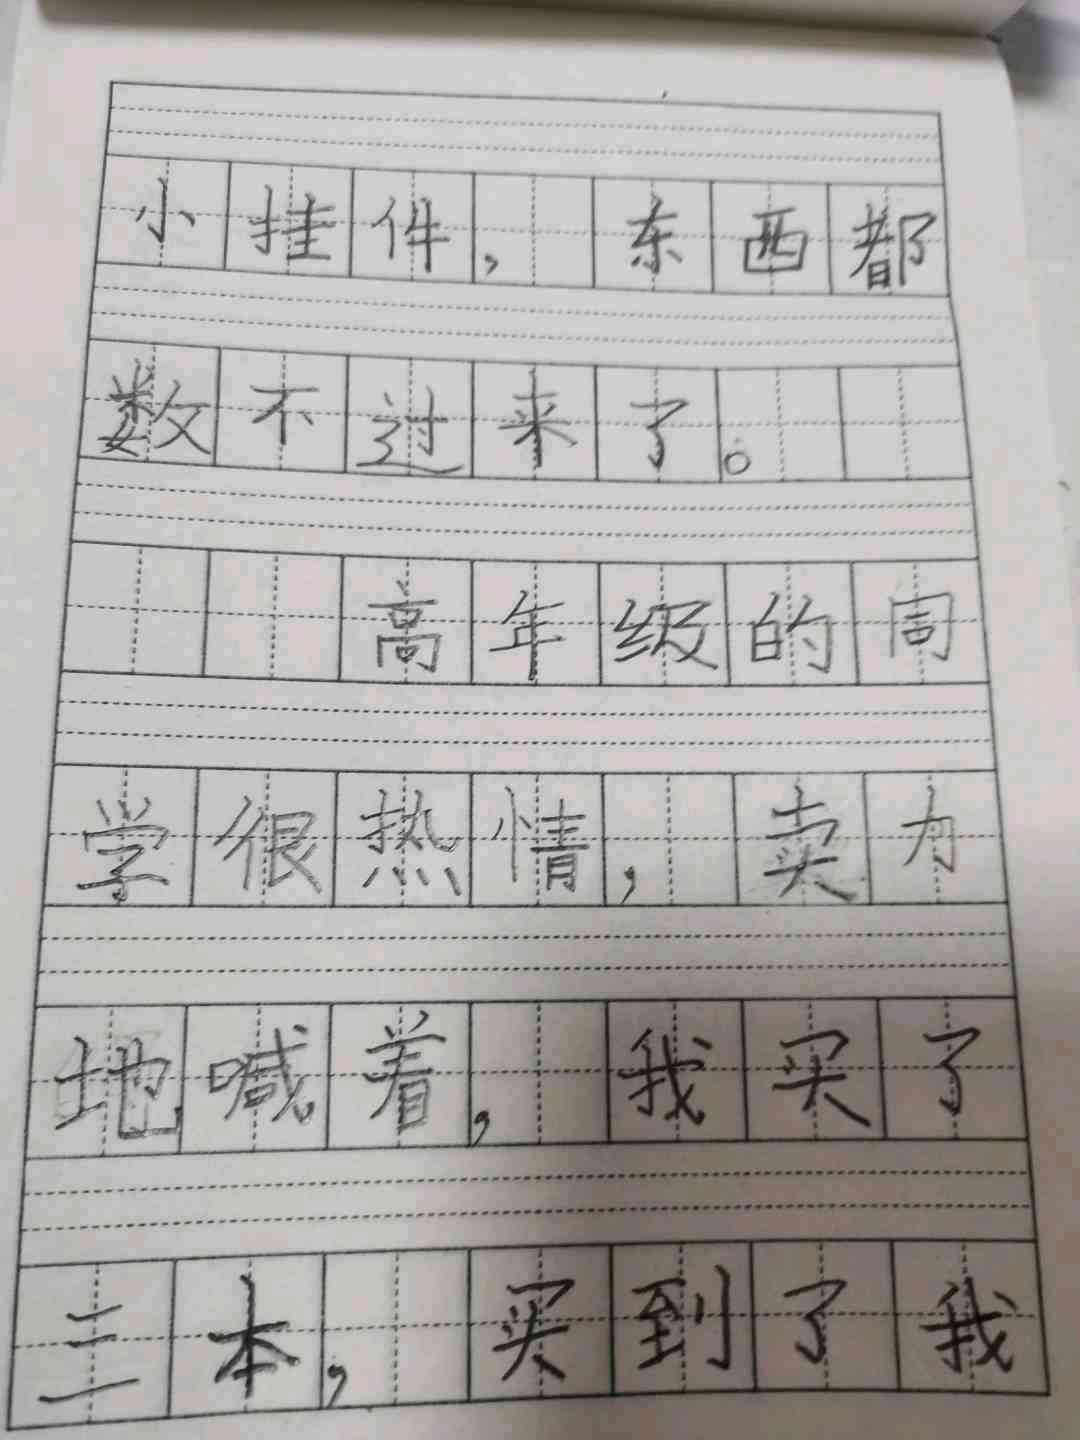 小挂件,东西都
数不过来了。
高年级的同
学很热情,卖力
地喊着,我买了
三本,买到了我